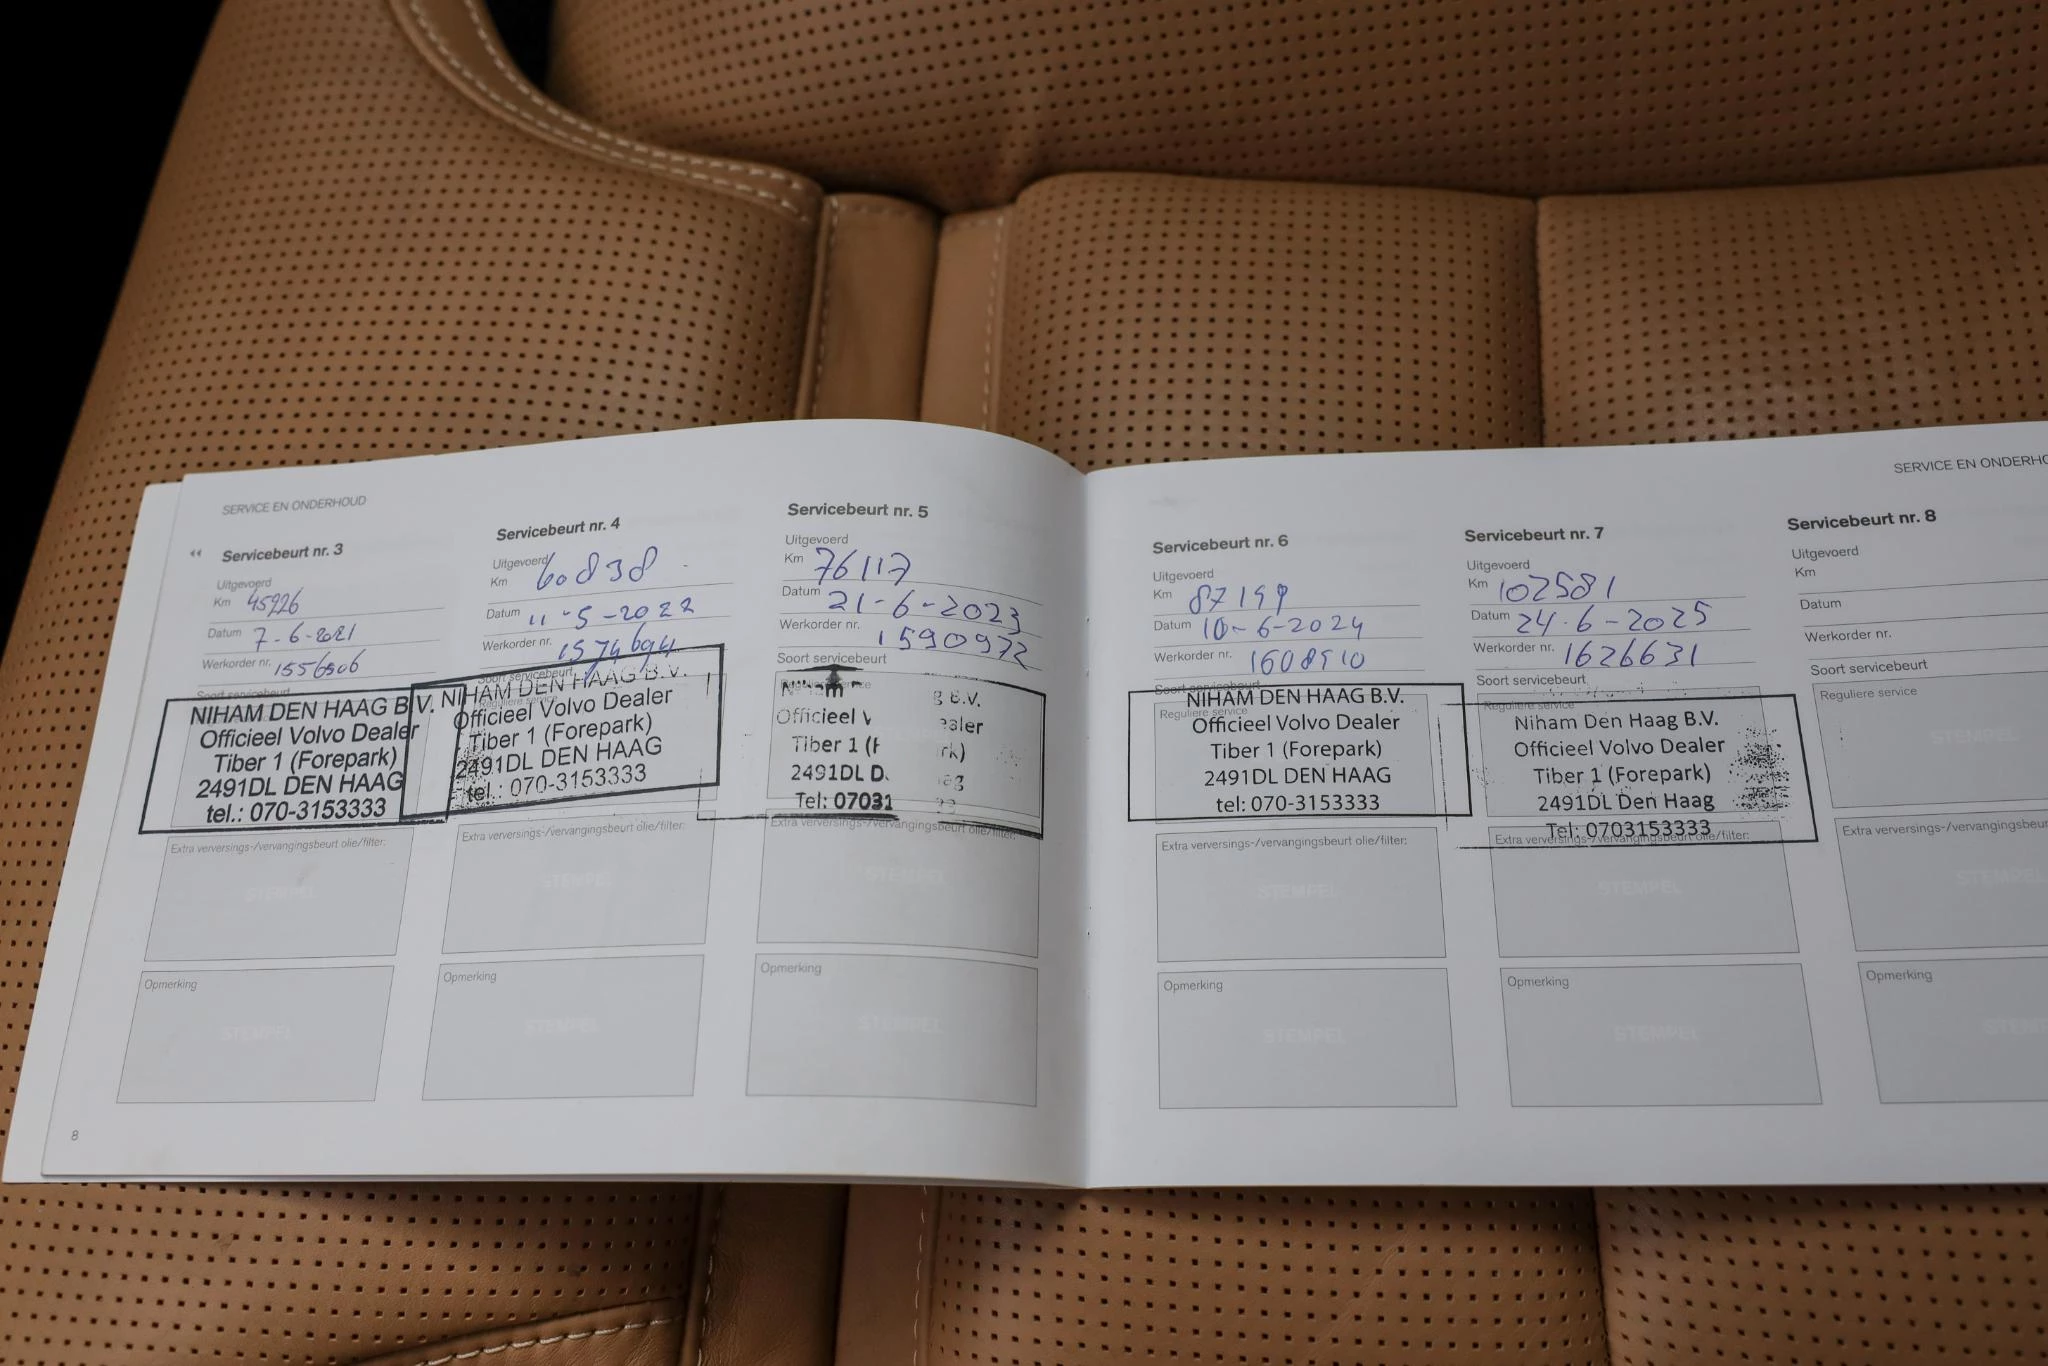 SERVICE EN ONDERHOUD
Servicebeurt nr. 3
Uitgevoerd
Km 45926
Datum 7-6-2021
Werkorder nr. 1556506
Soort servicebeurt
NIHAM DEN HAAG B.V.
Officieel Volvo Dealer
Tiber 1 (Forepark)
2491DL DEN HAAG
tel.: 070-3153333
Extra verversings-/vervangingsbeurt olie/filter:
STEMPEL
Opmerking
STEMPEL
8
Servicebeurt nr. 4
Uitgevoerd
Km 60838
Datum 11-5-2022
Werkorder nr. 1574694
Soort servicebeurt
Reguliere service
NIHAM DEN HAAG B.V.
Officieel Volvo Dealer
Tiber 1 (Forepark)
2491DL DEN HAAG
tel.: 070-3153333
Extra verversings-/vervangingsbeurt olie/filter:
STEMPEL
Opmerking
STEMPEL
Servicebeurt nr. 5
Uitgevoerd
Km 76117
Datum 21-6-2023
Werkorder nr. 1590972
Soort servicebeurt
Reguliere service
Niham B.V.
Officieel
Tiber 1
2491DL
Tel: 07031
Extra verversings-/vervangingsbeurt olie/filter:
STEMPEL
Opmerking
STEMPEL
Servicebeurt nr. 6
Uitgevoerd
Km 87199
Datum 10-6-2024
Werkorder nr. 1608910
Soort servicebeurt
Reguliere service
NIHAM DEN HAAG B.V.
Officieel Volvo Dealer
Tiber 1 (Forepark)
2491DL DEN HAAG
tel: 070-3153333
Extra verversings-/vervangingsbeurt olie/filter:
STEMPEL
Opmerking
STEMPEL
Servicebeurt nr. 7
Uitgevoerd
Km 102581
Datum 24-6-2025
Werkorder nr. 1626631
Soort servicebeurt
Reguliere service
Niham Den Haag B.V.
Officieel Volvo Dealer
Tiber 1 (Forepark)
2491DL Den Haag
Tel: 0703153333
Extra verversings-/vervangingsbeurt olie/filter:
STEMPEL
Opmerking
STEMPEL
SERVICE EN ONDERHO
Servicebeurt nr. 8
Uitgevoerd
Km
Datum
Werkorder nr.
Soort servicebeurt
Reguliere service
STEMPEL
Extra verversings-/vervangingsbeur
STEMPEL
Opmerking
STEMP